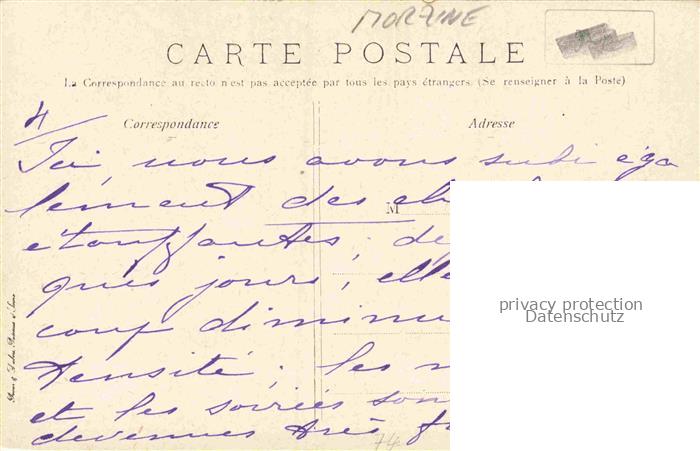 MORZINE
CARTE POSTALE
La Correspondance au recto n'est pas acceptée par tous les pays étrangers. (Se renseigner à la Poste)
4
Correspondance
Adresse
Ici, nous avons subi éga
lement des
M
étouffantes ; de
ques jours, elle
coup diminu
tensité ; les
et les soirées son
devenues très
74
privacy protection
Datenschutz